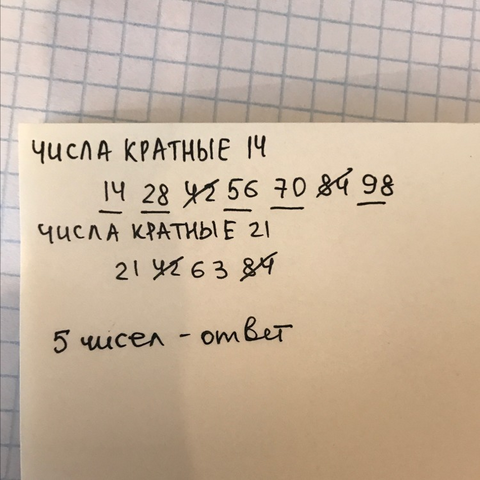 ЧИСЛА КРАТНЫЕ 14
14 28 42 56 70 84 98
ЧИСЛА КРАТНЫЕ 21
21 42 63 84
5 чисел - ответ